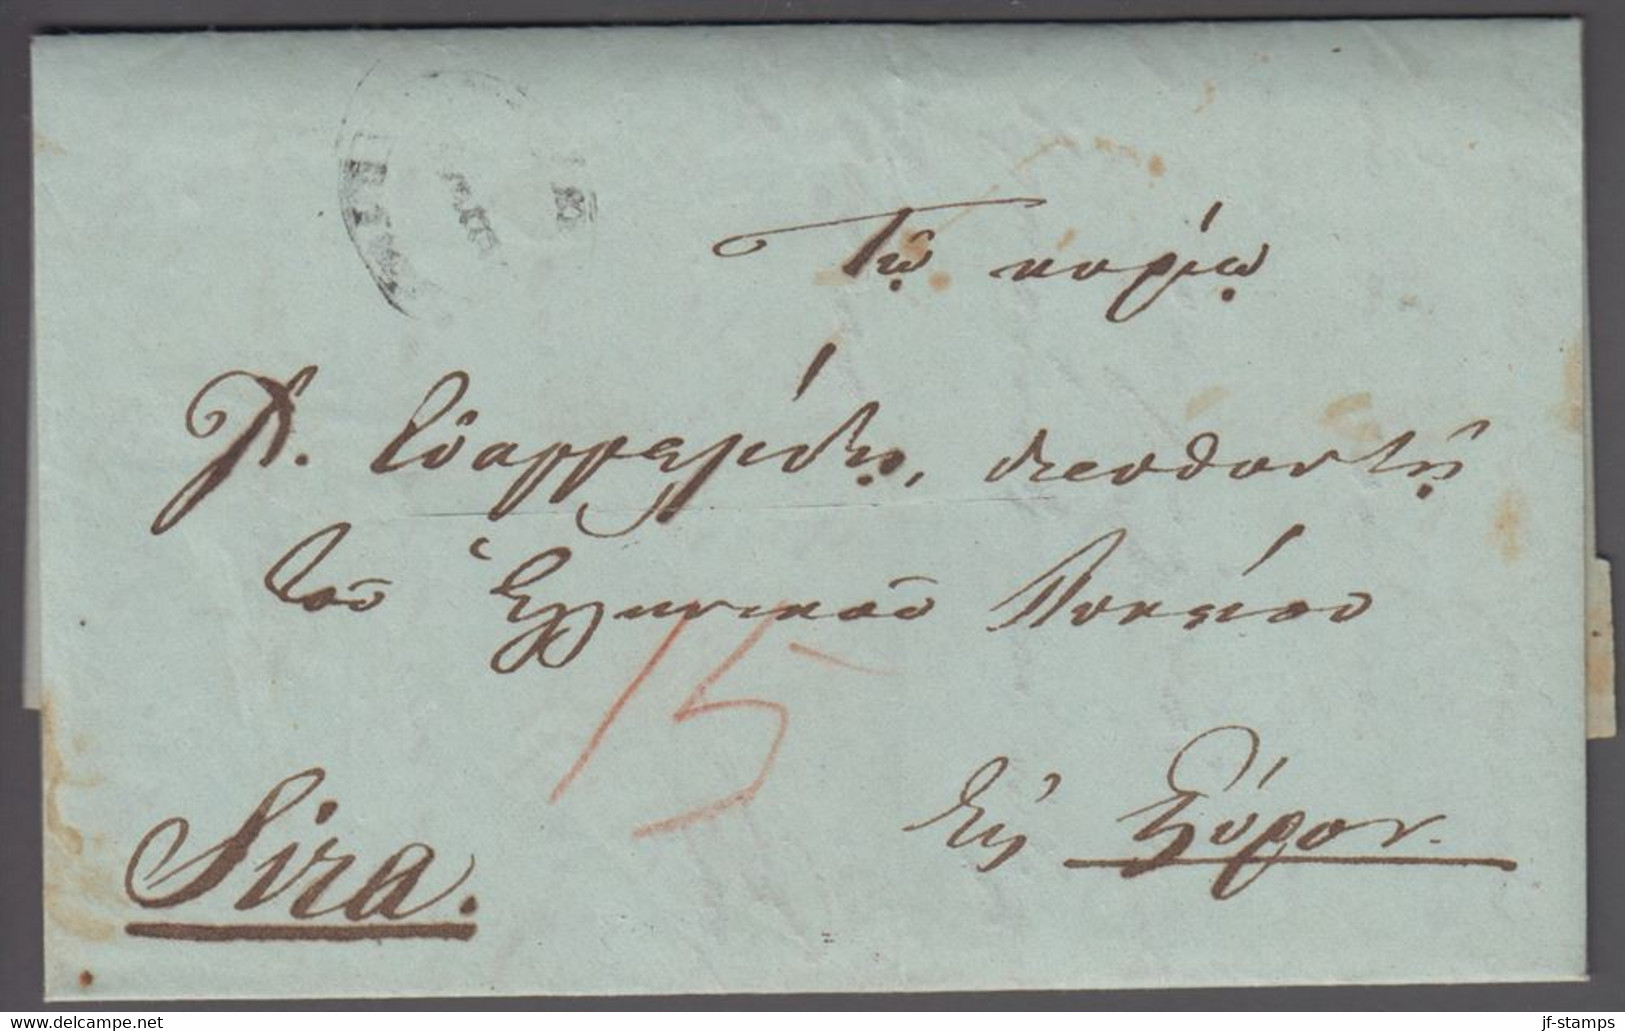 Τῷ κυρίῳ
Χ. Εὐαγγελίδῃ, διευθυντῇ
τοῦ Ἑλληνικοῦ Λυκείου
15
Εἰς Σύρον.
Sira.
delcampe.net
jf-stamps